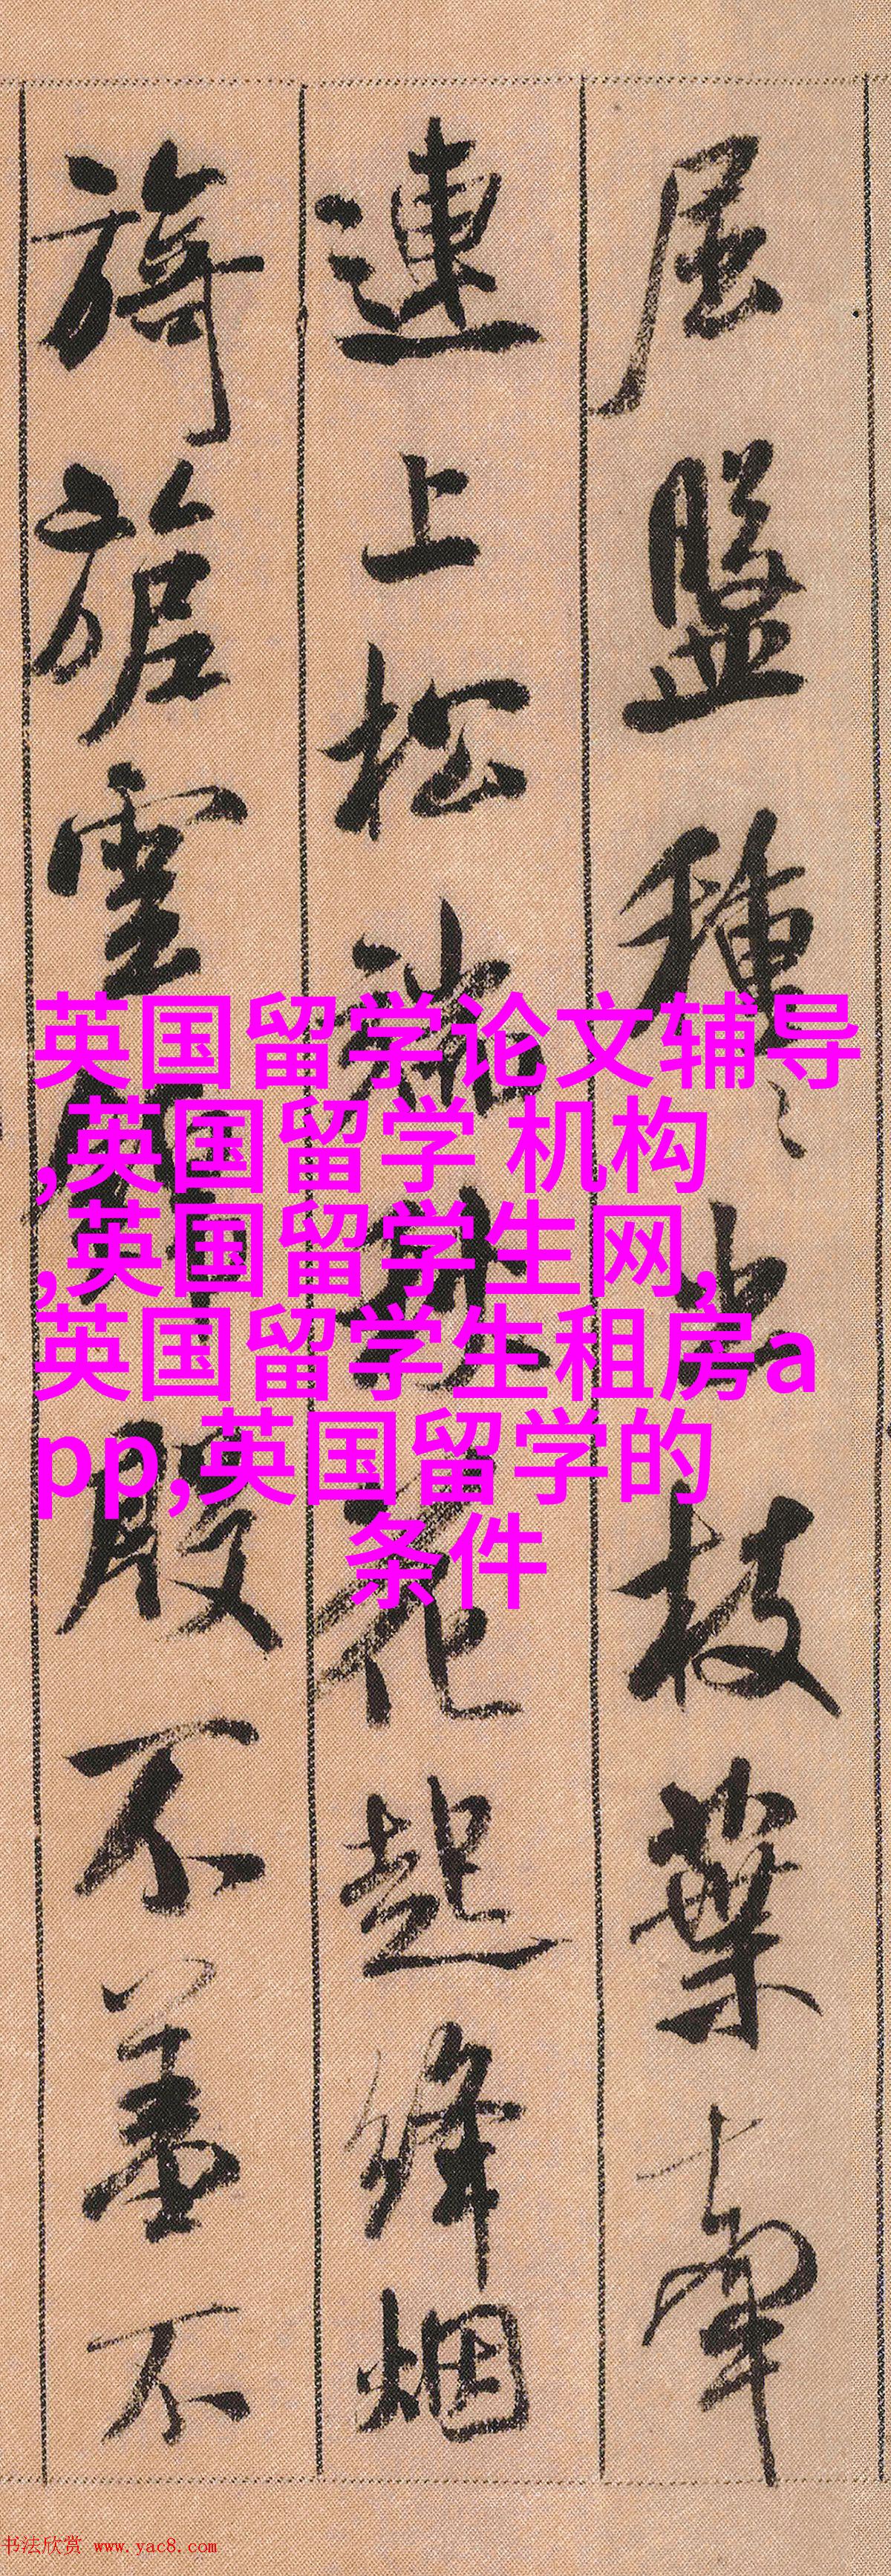 屈盤種種出枝葉牽
連上松端秋花起絳烟
旖旎雲錦殷不羞不
英国留学论文辅导
,英国留学 机构
,英国留学生网,
英国留学生租房a
pp,英国留学的
条件
书法欣赏 www.yac8.com